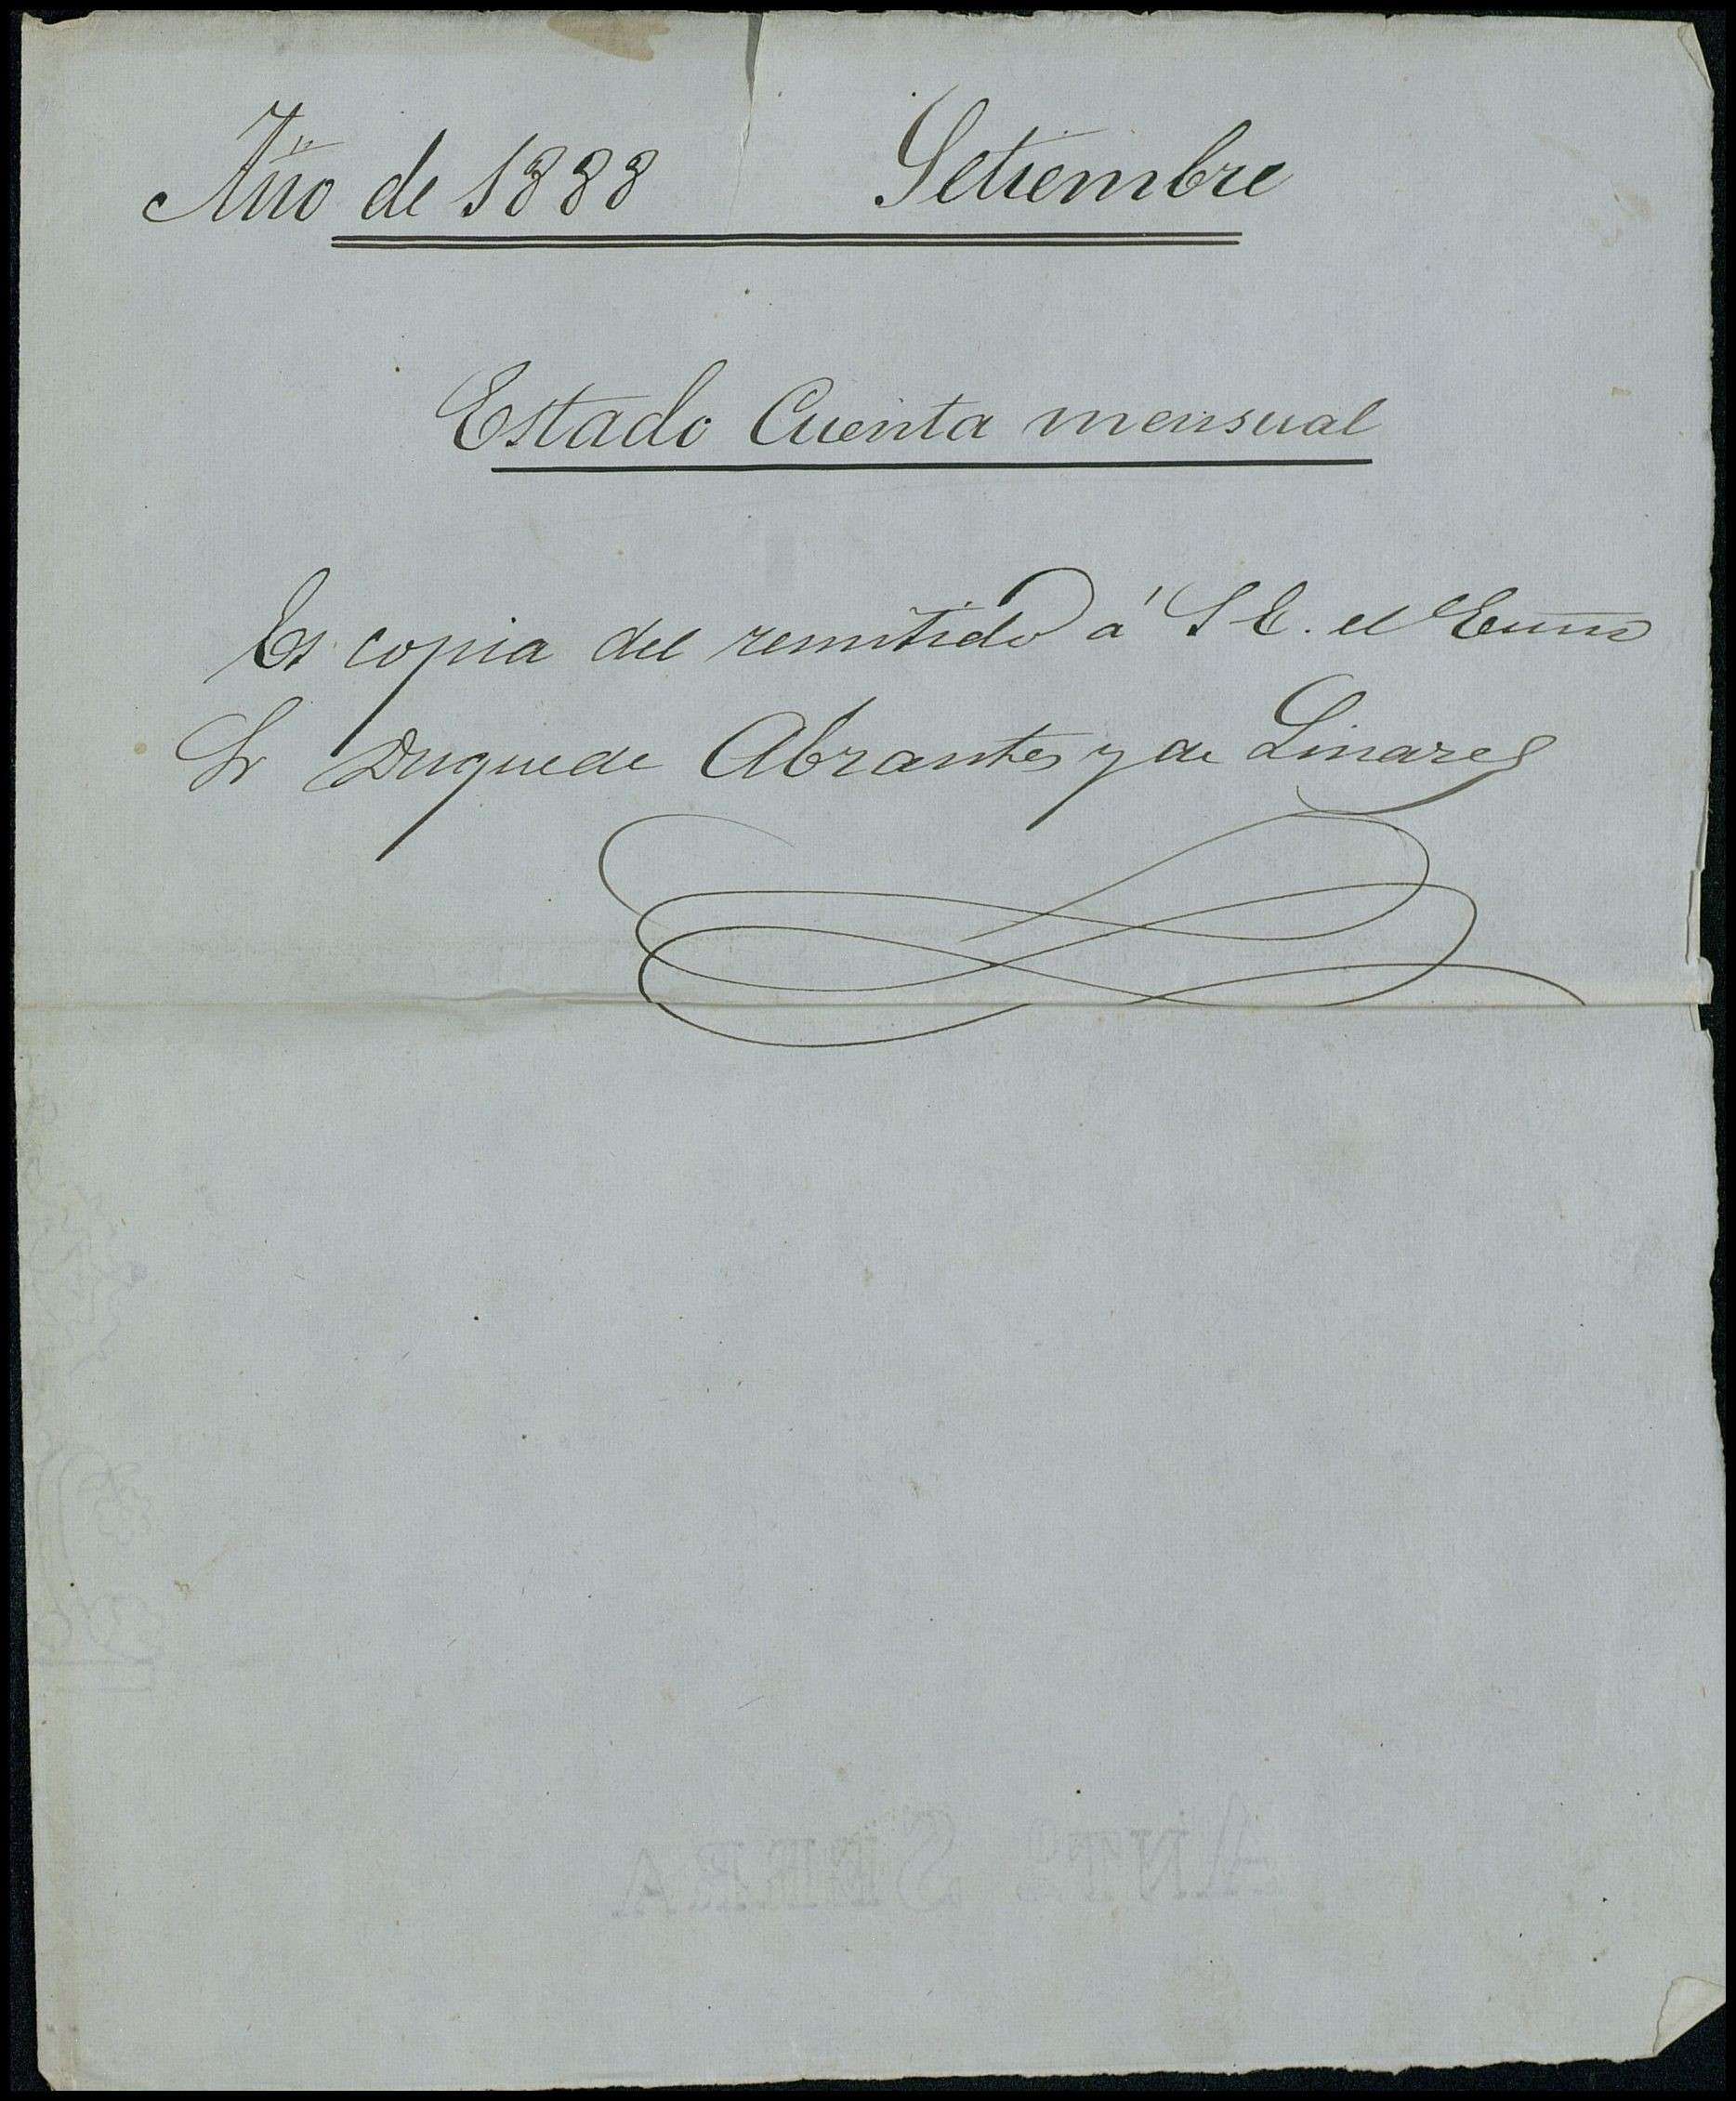 Año de 1888 Setiembre
Estado Cuenta mensual
Es copia del remitido á S E. el Exmo
Sr Duque de Abrantes y de Linares